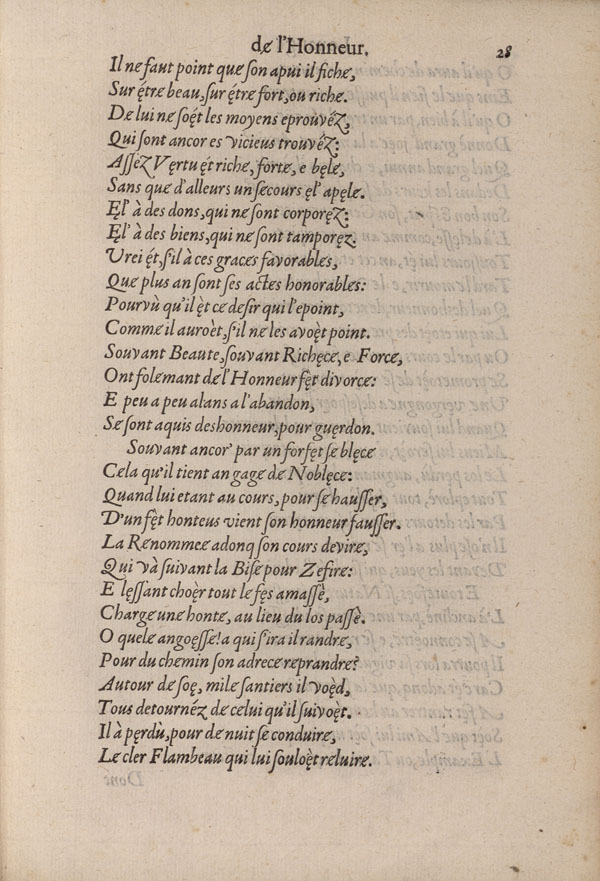 de l'Honneur. 28
Il ne faut point que ſon apui il fiche,
Sur ę́tre beau, ſur ę́tre fort, ou riche.
De lui ne ſoę́t les moyens eprouvéz,
Qui ſont ancor es vicieus trouvéz:
Aſſez Vęrtu ę́t riche, forte, e bęle,
Sans que d'alleurs un ſecours ęl' apęle.
Ęl' à des dons, qui ne ſont corporęz:
Ęl' à des biens, qui ne ſont tamporęz.
Vrei ę́t, s'il à ces graces favorables,
Que plus an ſont ſes actes honorables:
Pourvù qu'il ę̀t ce deſir qui l'epoint,
Comme il auroèt, s'il ne les avoęt point.
Souvant Beaute, ſouvant Richęce, e Force,
Ont folemant de l'Honneur fęt divorce:
E peu a peu alans a l'abandon,
Se ſont aquis deshonneur pour guęrdon.
Souvant ancor' par un forfęt ſe blęce
Cela qu'il tient an gage de Noblęce:
Quand lui etant au cours, pour ſe hauſſer,
D'un fęt honteus vient ſon honneur fauſſer.
La Renommee adonq ſon cours devire,
Qui và ſuivant la Biſe pour Zefire:
E lęſſant choèr tout le fęs amaſſè,
Charge une honte, au lieu du los paſſè.
O quele angoęſſe! a qui s'ira il randre,
Pour du chemin ſon adrece reprandre?
Autour de ſoę, mile santiers il voęd,
Tous detournéz de celui qu'il ſuivoęt.
Il à pęrdù, pour de nuit ſe conduire,
Le cler Flambeau qui lui ſouloęt reluire.
Donc